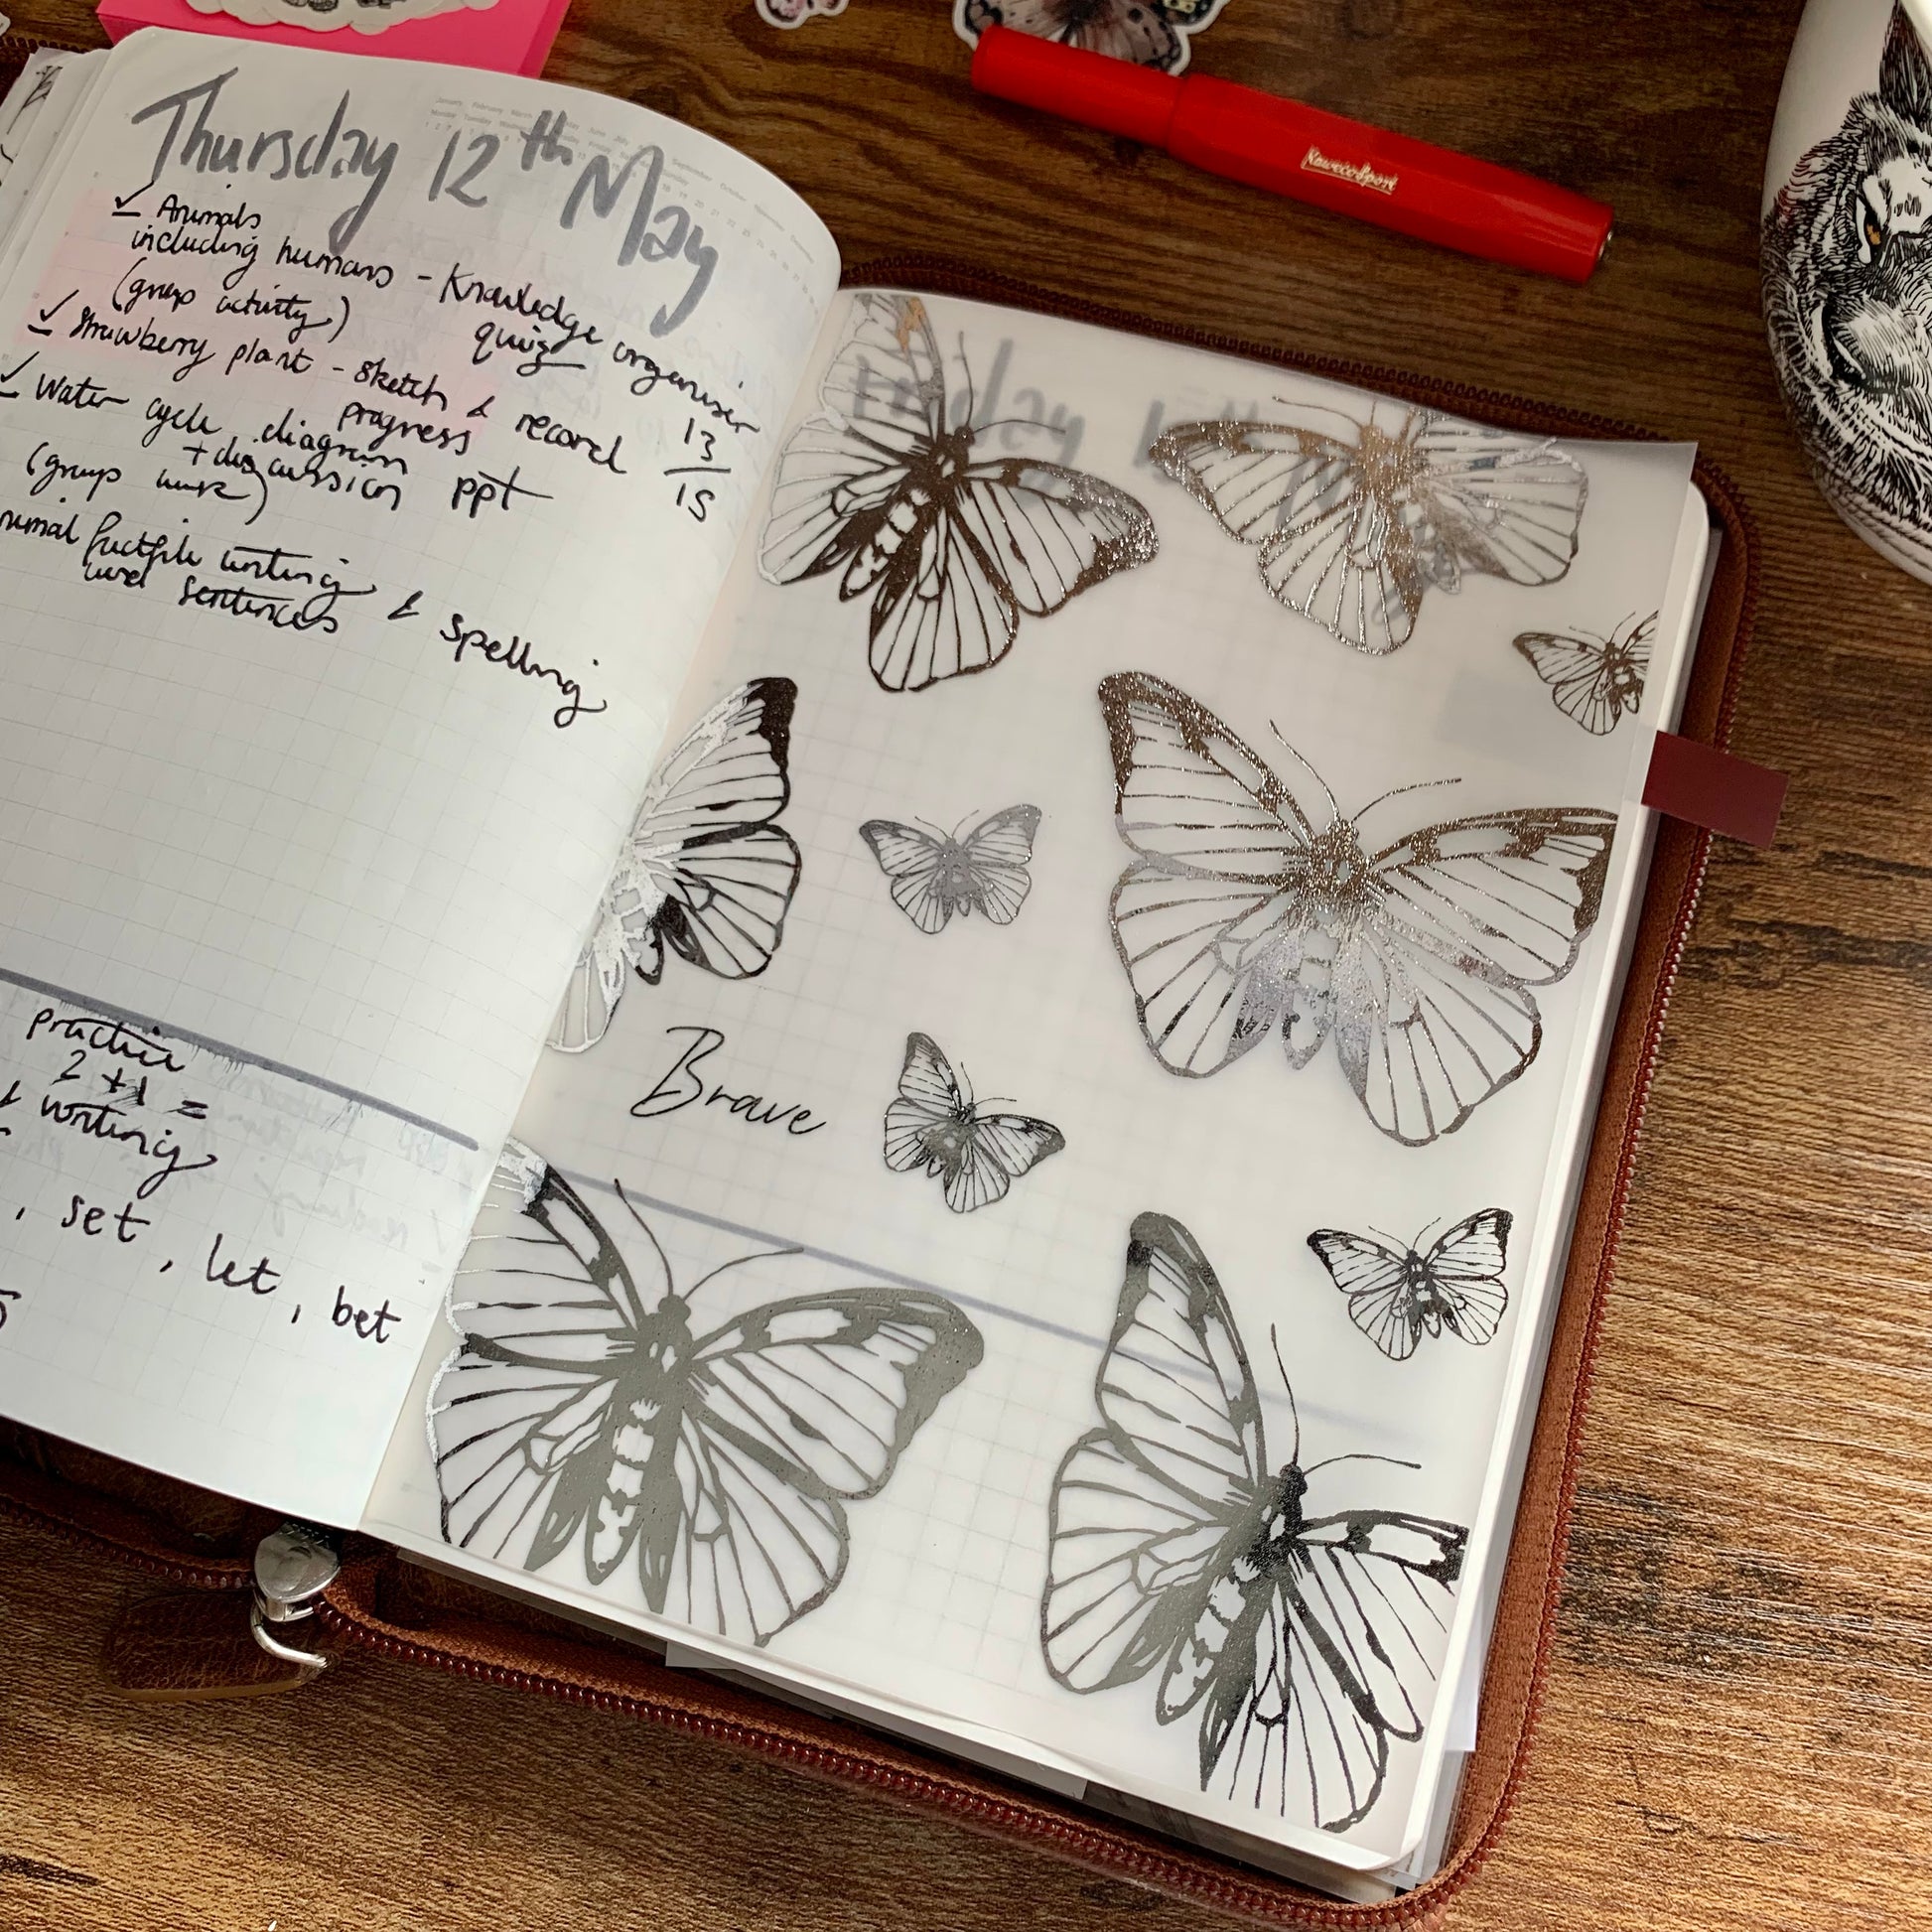 Thursday 12th May
Animals
including humans - Knowledge organiser
(group activity) quiz
Strawberry plant - sketch & record 13/15
progress
Water cycle diagram
+ discussion ppt
(group work)
nimal factfile writing & spelling
sentences
practice
2 + 1 =
& writing
, set, let, bet
Friday
Brave
Kaweco Sport